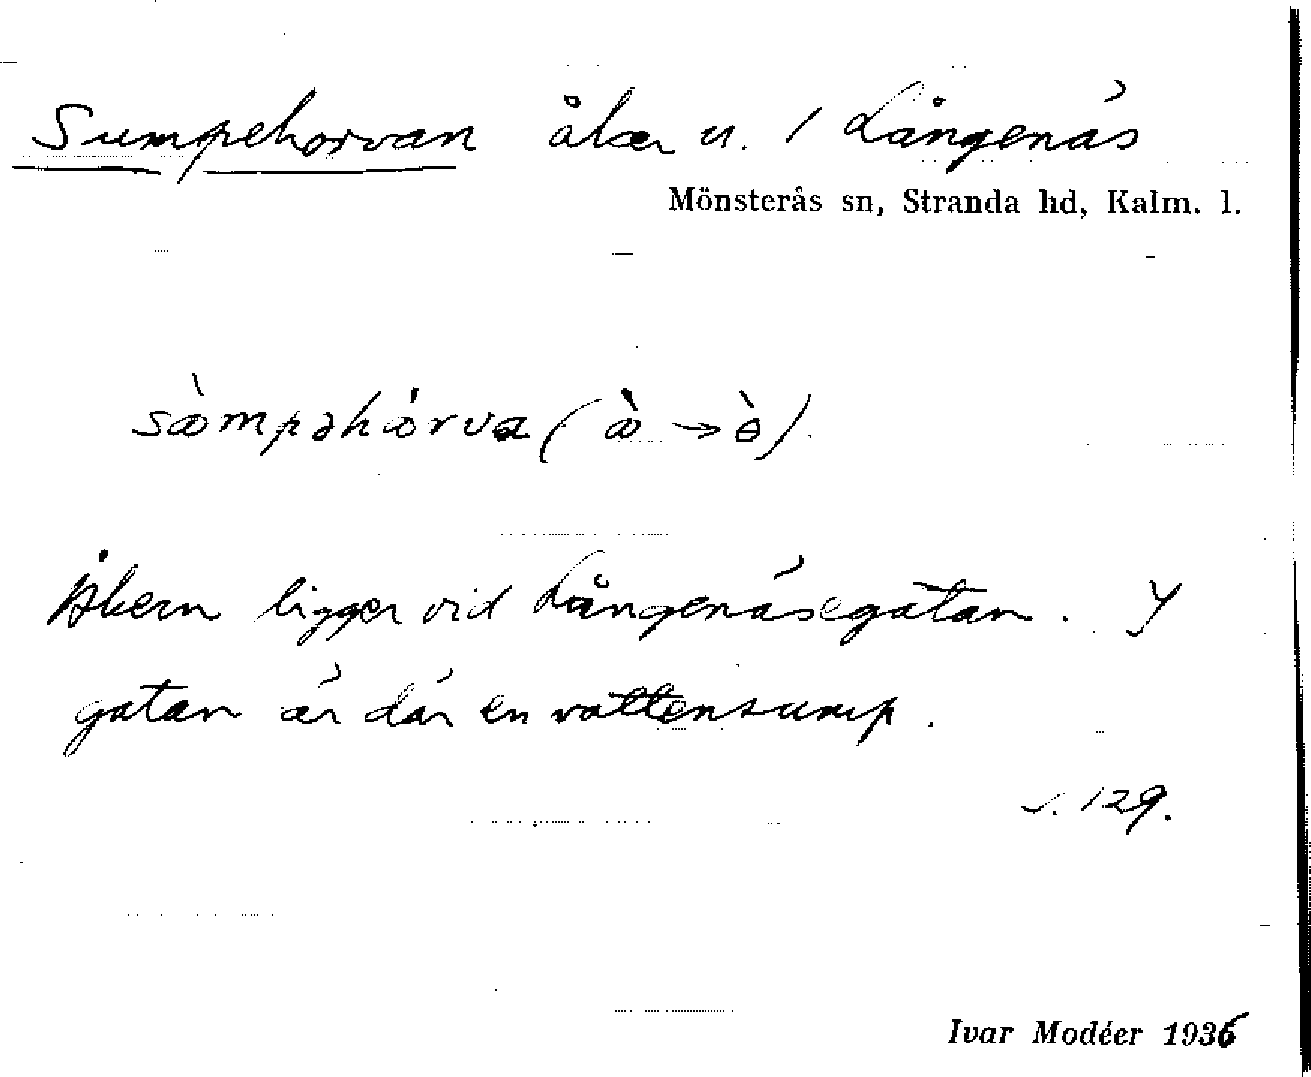 Sumpehorvan åker u. / Långenäs
Mönsterås sn, Stranda hd, Kalm. l.
sæ̀mpəhæ̀rva (æ̀ → ɵ̀)
Åkern ligger vid Långenäsegatan. I
gatan är där en vattensump.
s. 129.
Ivar Modéer 1936